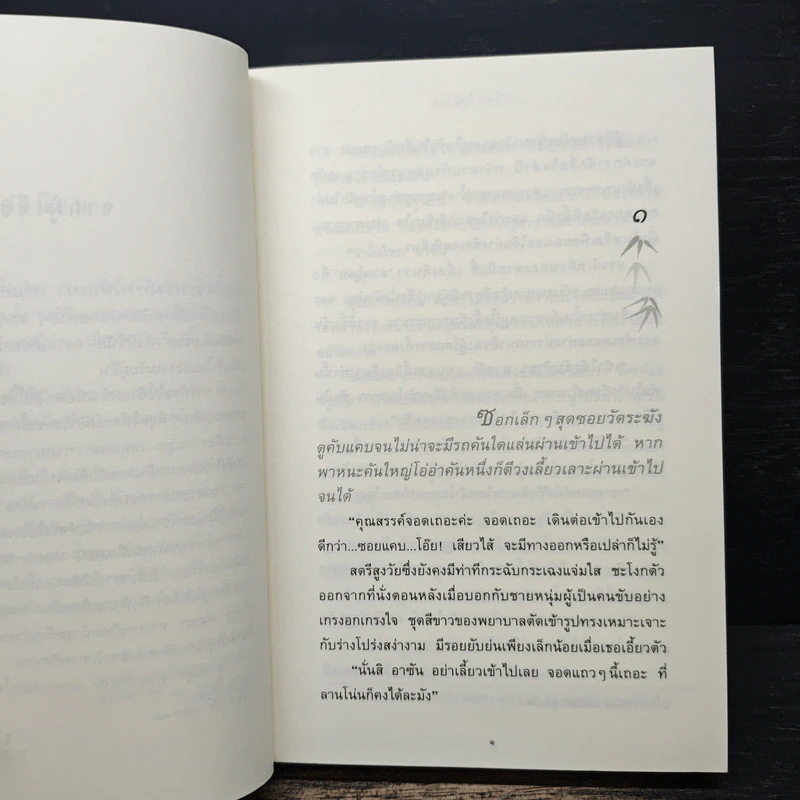 ๑
ซอกเล็ก ๆ สุดซอยวัดระฆัง
ดูคับแคบจนไม่น่าจะมีรถคันใดแล่นผ่านเข้าไปได้ หาก
พาหนะคันใหญ่โอ่อ่าคันหนึ่งก็ตีวงเลี้ยวเลาะผ่านเข้าไป
จนได้
“คุณสรรค์จอดเถอะค่ะ จอดเถอะ เดินต่อเข้าไปกันเอง
ดีกว่า...ซอยแคบ...โอ๊ย! เสียวไส้ จะมีทางออกหรือเปล่าก็ไม่รู้”
สตรีสูงวัยซึ่งยังคงมีท่าทีกระฉับกระเฉงแจ่มใส ชะโงกตัว
ออกจากที่นั่งตอนหลังเมื่อบอกกับชายหนุ่มผู้เป็นคนขับอย่าง
เกรงอกเกรงใจ ชุดสีขาวของพยาบาลตัดเข้ารูปทรงเหมาะเจาะ
กับร่างโปร่งสง่างาม มีรอยยับย่นเพียงเล็กน้อยเมื่อเธอเอี้ยวตัว
“นั่นสิ อาซัน อย่าเลี้ยวเข้าไปเลย จอดแถว ๆ นี้เถอะ ที่
ลานโน่นก็คงได้ละมัง”
๑